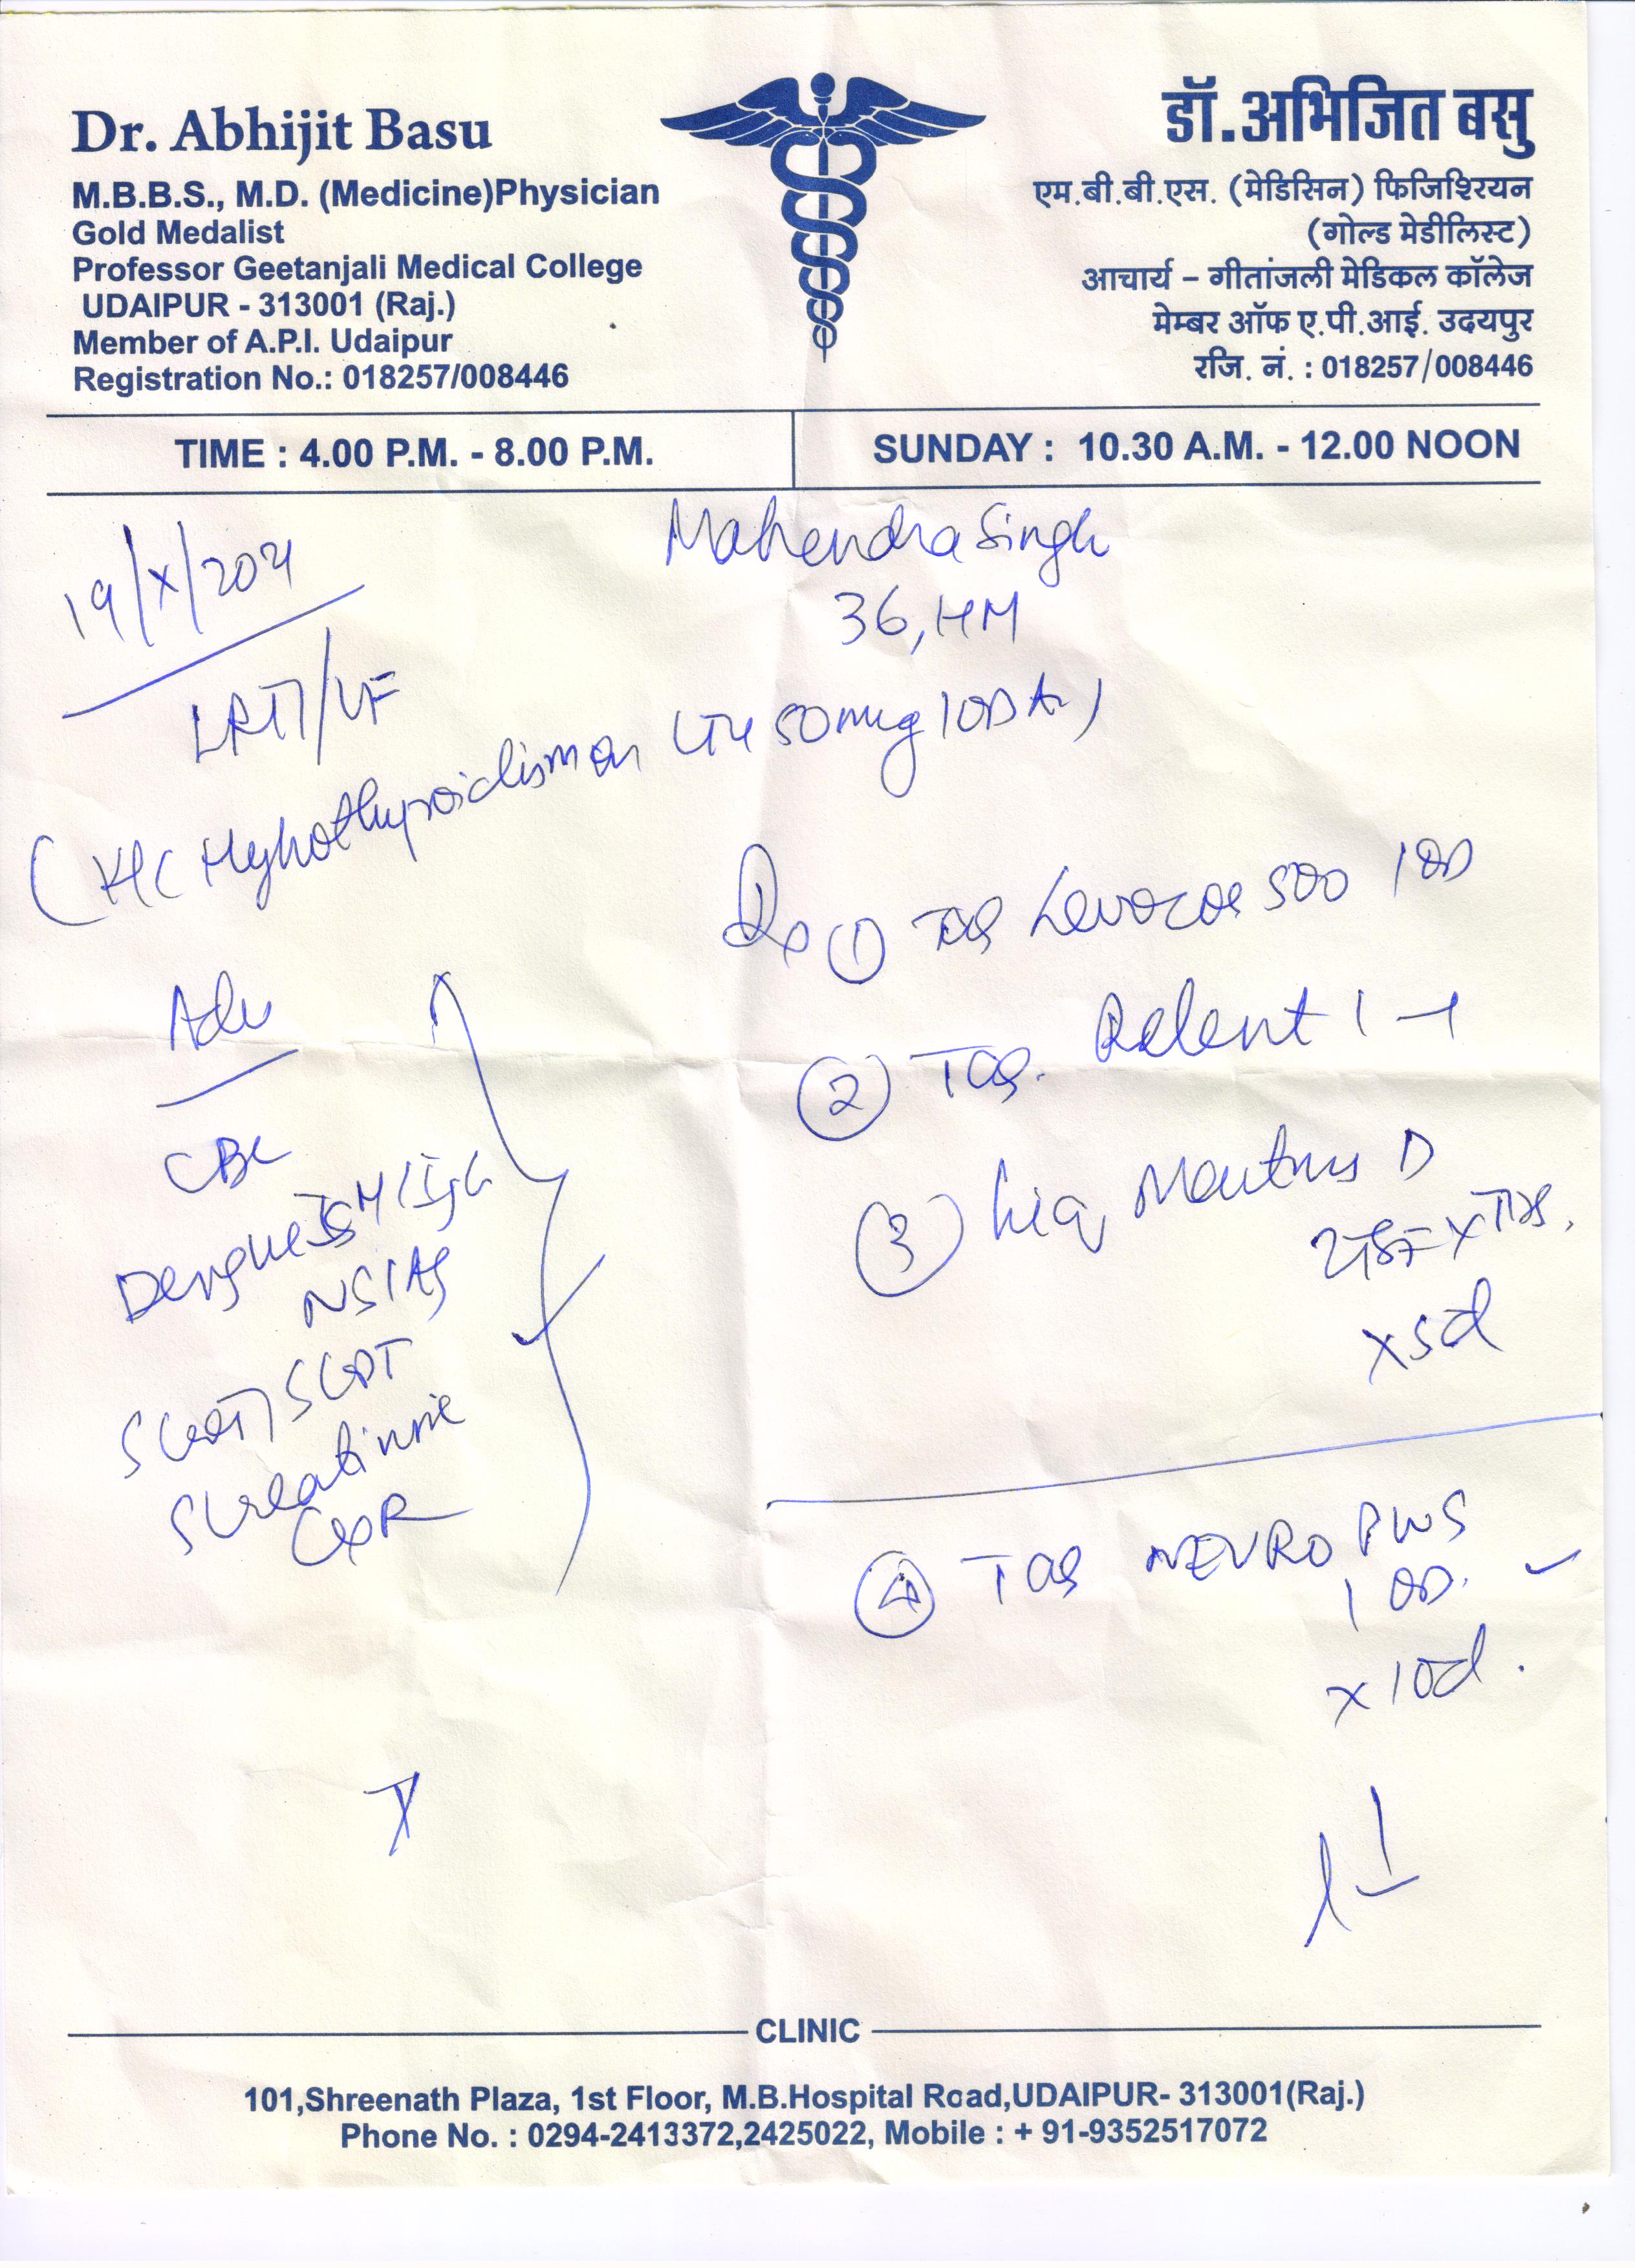 Dr. Abhijit Basu
M.B.B.S., M.D. (Medicine)Physician
Gold Medalist
Professor Geetanjali Medical College
UDAIPUR - 313001 (Raj.)
Member of A.P.I. Udaipur
Registration No.: 018257/008446
डॉ.अभिजित बसु
एम.बी.बी.एस. (मेडिसिन) फिजिश्यिन
(गोल्ड मेडीलिस्ट)
आचार्य - गीतांजली मेडिकल कॉलेज
मेम्बर ऑफ ए.पी.आई. उदयपुर
रजि. नं. : 018257/008446
TIME : 4.00 P.M. - 8.00 P.M.
SUNDAY : 10.30 A.M. - 12.00 NOON
Mahendra Singh
36, HM
19/X/2021
LRTI/VF
(K/C Hypothyroidism on LT4 50mcg 1OD
Adv
CBC
Dengue IgM/IgG
NS1Ag
SGOT/SGPT
S Creatinine
CXR
Rx ① Tab 500 1 OD
② Tab. Relent 1-1
③ Liq D
2TSF x TDS.
x5d
④ Tab NEURO PLUS
1 OD.
x 10d.
CLINIC
101,Shreenath Plaza, 1st Floor, M.B.Hospital Road,UDAIPUR- 313001(Raj.)
Phone No. : 0294-2413372,2425022, Mobile : + 91-9352517072